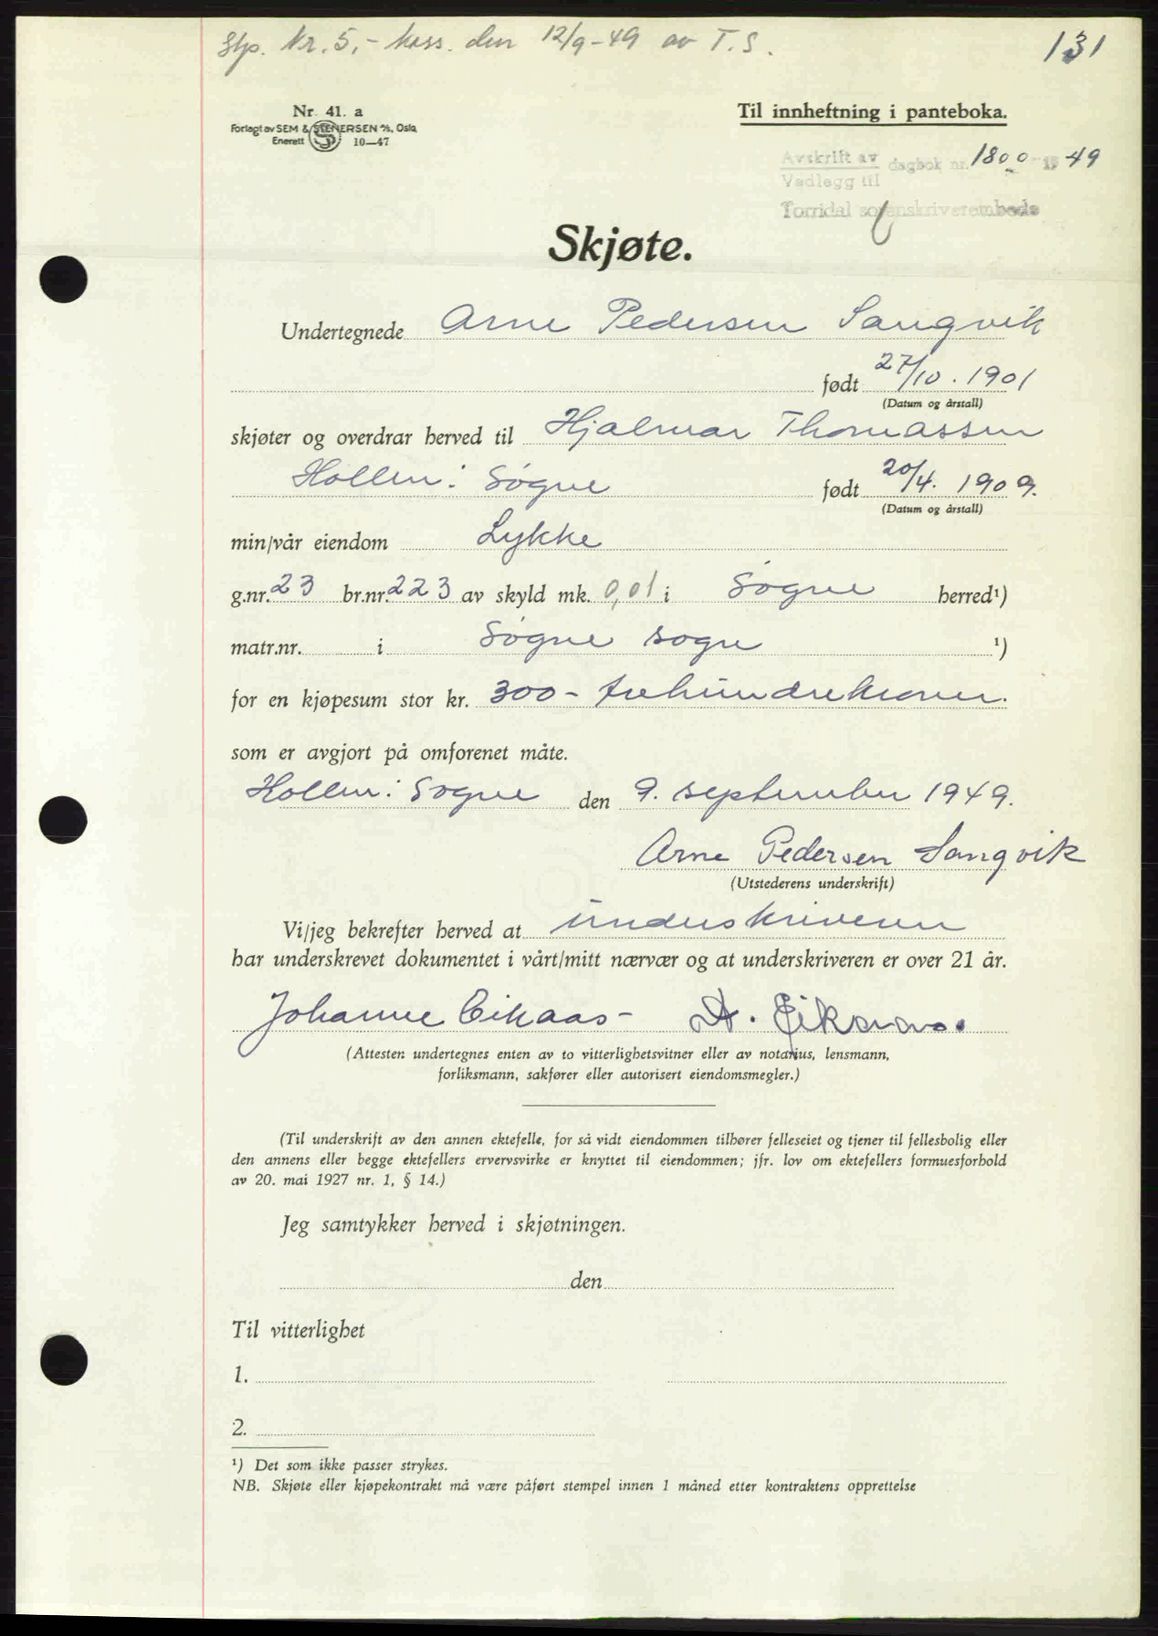 Stp. Kr. 5,- kass. den 12/9-49 av T.S.
131
Nr. 41. a
Forlagt av SEM & STENERSEN A/S, Oslo
Enerett 10-47
Til innheftning i panteboka.
Avskrift av
Vedlegg til
dagbok nr. 1800 19 49
Torridal sorenskriverembede
Skjøte.
Undertegnede Arne Pedersen Sangvik
født 27/10. 1901
(Datum og årstall)
skjøter og overdrar herved til Hjalmar Thomassen
Hollen i Søgne født 20/4. 1909.
(Datum og årstall)
min/vår eiendom Lykke
g.nr. 23 br.nr. 223 av skyld mk. 0,01 i Søgne herred¹)
matr.nr. i Søgne sogn ¹)
for en kjøpesum stor kr. 300- trehundrekroner.
som er avgjort på omforenet måte.
Hollen i Søgne den 9. september 1949.
Arne Pedersen Sangvik
(Utstederens underskrift)
Vi/jeg bekrefter herved at underskriveren
har underskrevet dokumentet i vårt/mitt nærvær og at underskriveren er over 21 år.
Johanne Eikaas- A. Eikaas.
(Attesten undertegnes enten av to vitterlighetsvitner eller av notarius, lensmann,
forliksmann, sakfører eller autorisert eiendomsmegler.)
(Til underskrift av den annen ektefelle, for så vidt eiendommen tilhører felleseiet og tjener til fellesbolig eller
den annens eller begge ektefellers ervervsvirke er knyttet til eiendommen; jfr. lov om ektefellers formuesforhold
av 20. mai 1927 nr. 1, § 14.)
Jeg samtykker herved i skjøtningen.
den
Til vitterlighet
1.
2.
¹) Det som ikke passer strykes.
NB. Skjøte eller kjøpekontrakt må være påført stempel innen 1 måned etter kontraktens opprettelse